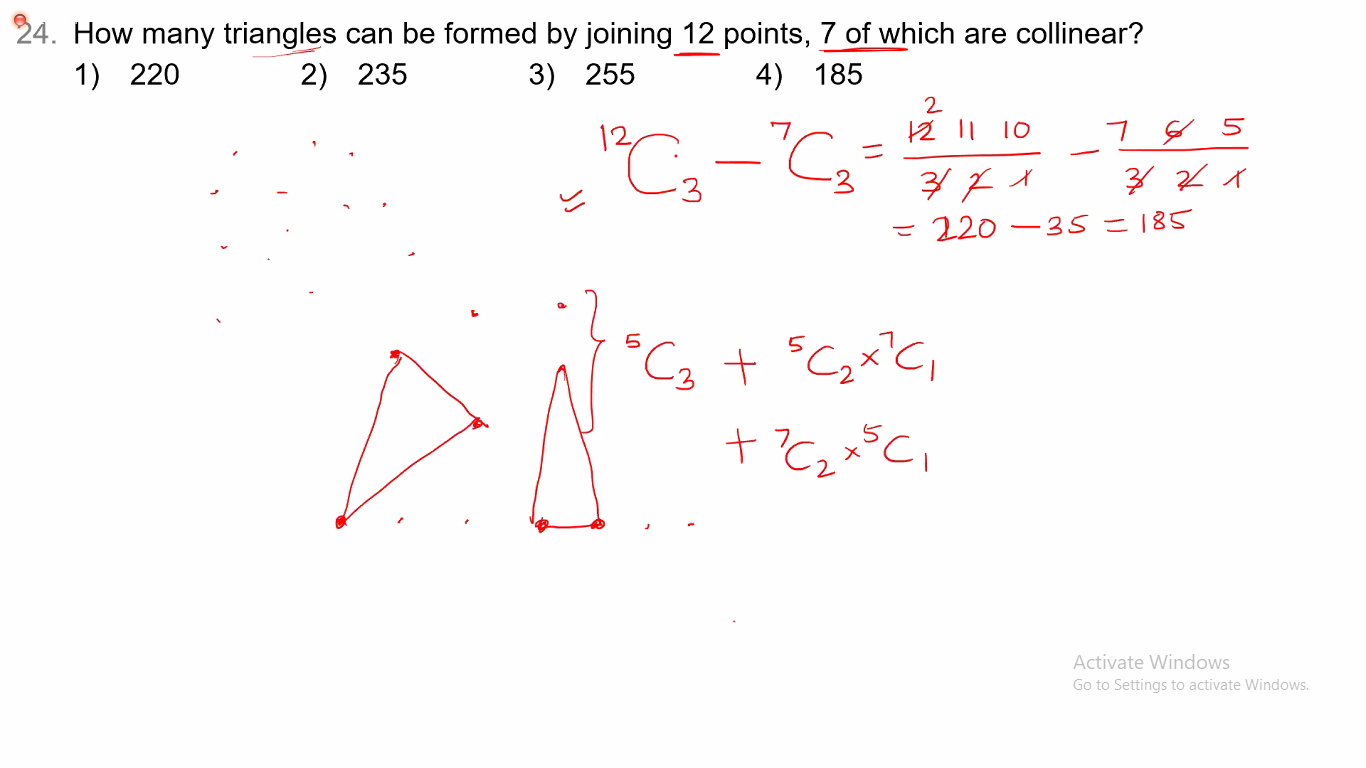 24. How many triangles can be formed by joining 12 points, 7 of which are collinear?
1) 220 2) 235 3) 255 4) 185
¹²C₃ − ⁷C₃ = 12 11 10 / 3 2 1 − 7 6 5 / 3 2 1
2
= 220 − 35 = 185
⁵C₃ + ⁵C₂ × ⁷C₁
+ ⁷C₂ × ⁵C₁
Activate Windows
Go to Settings to activate Windows.